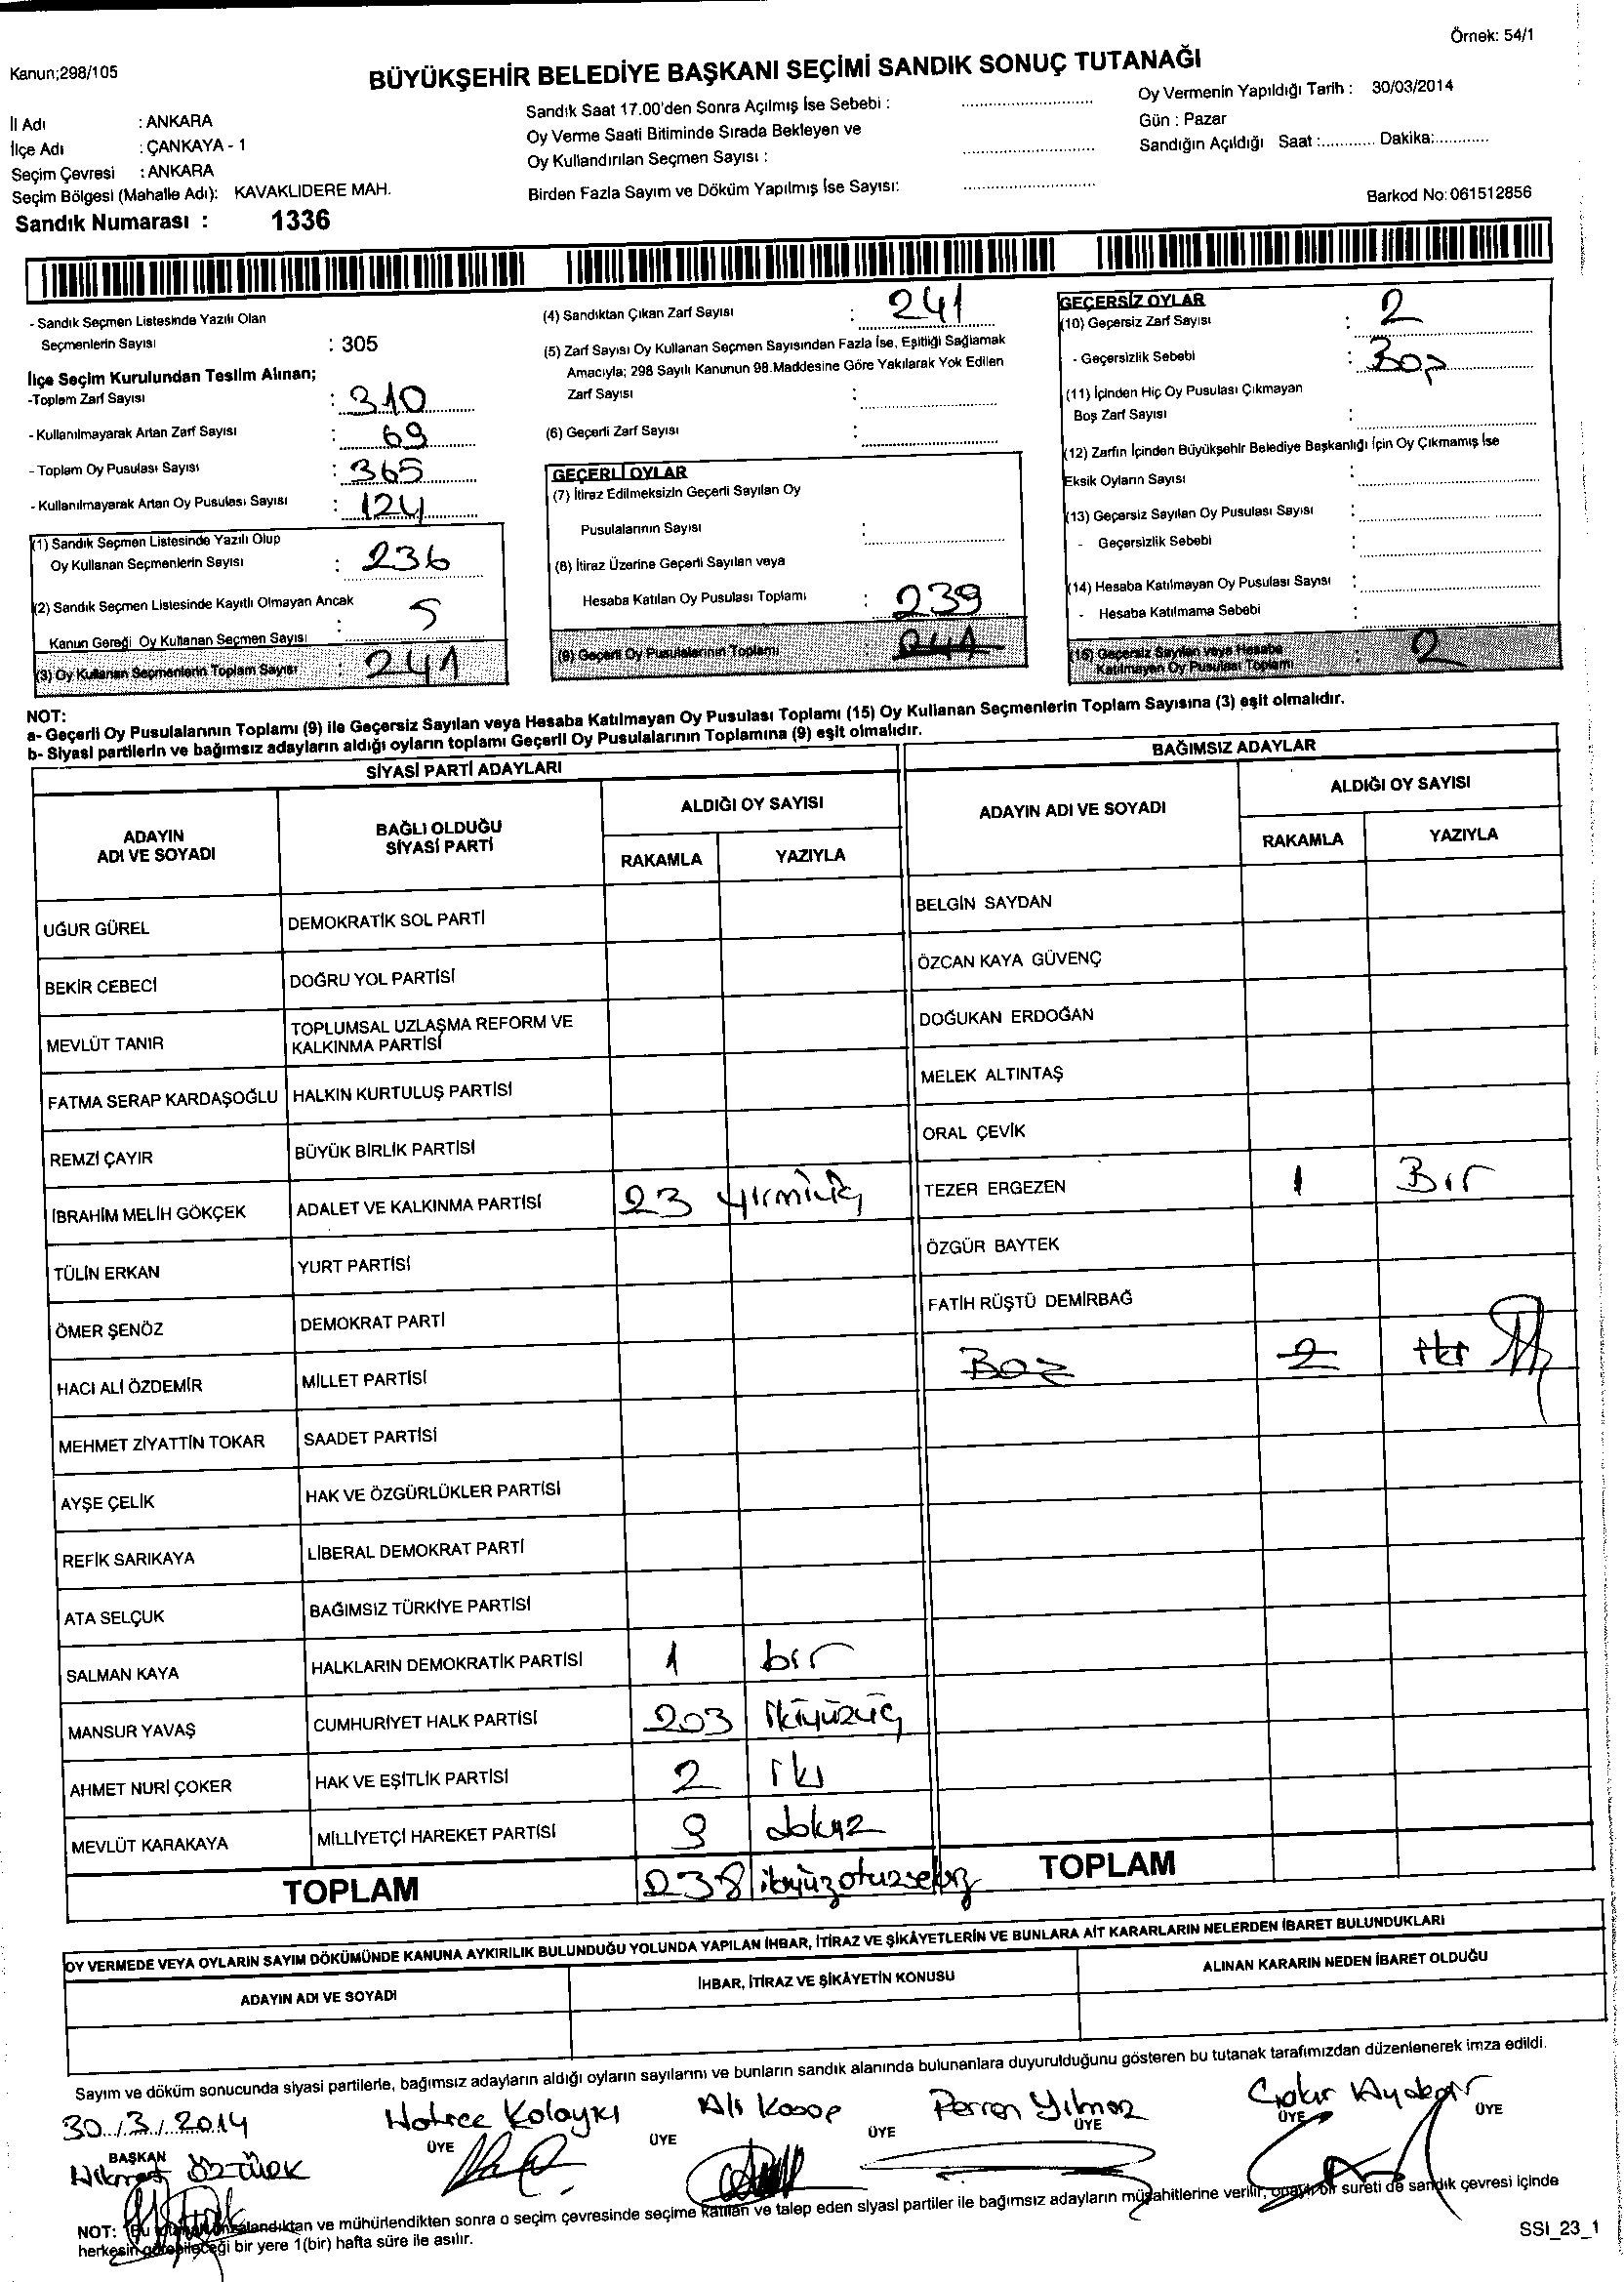 Örnek: 54/1
Kanun;298/105
BÜYÜKŞEHİR BELEDİYE BAŞKANI SEÇİMİ SANDIK SONUÇ TUTANAĞI
İl Adı : ANKARA
İlçe Adı : ÇANKAYA - 1
Seçim Çevresi : ANKARA
Seçim Bölgesi (Mahalle Adı): KAVAKLIDERE MAH.
Sandık Numarası : 1336
Sandık Saat 17.00'den Sonra Açılmış İse Sebebi :
Oy Verme Saati Bitiminde Sırada Bekleyen ve
Oy Kullandırılan Seçmen Sayısı :
Birden Fazla Sayım ve Döküm Yapılmış İse Sayısı:
Oy Vermenin Yapıldığı Tarih : 30/03/2014
Gün : Pazar
Sandığın Açıldığı Saat :............ Dakika:............
Barkod No: 061512856
- Sandık Seçmen Listesinde Yazılı Olan
Seçmenlerin Sayısı : 305
İlçe Seçim Kurulundan Teslim Alınan;
-Toplam Zarf Sayısı : 310
- Kullanılmayarak Artan Zarf Sayısı : 69
- Toplam Oy Pusulası Sayısı : 365
- Kullanılmayarak Artan Oy Pusulası Sayısı : 124
(1) Sandık Seçmen Listesinde Yazılı Olup
Oy Kullanan Seçmenlerin Sayısı : 236
(2) Sandık Seçmen Listesinde Kayıtlı Olmayan Ancak
Kanun Gereği Oy Kullanan Seçmen Sayısı : 5
(3) Oy Kullanan Seçmenlerin Toplam Sayısı : 241
(4) Sandıktan Çıkan Zarf Sayısı : 241
(5) Zarf Sayısı Oy Kullanan Seçmen Sayısından Fazla İse, Eşitliği Sağlamak
Amacıyla; 298 Sayılı Kanunun 98.Maddesine Göre Yakılarak Yok Edilen
Zarf Sayısı :
(6) Geçerli Zarf Sayısı :
GEÇERLİ OYLAR
(7) İtiraz Edilmeksizin Geçerli Sayılan Oy
Pusulalarının Sayısı :
(8) İtiraz Üzerine Geçerli Sayılan veya
Hesaba Katılan Oy Pusulası Toplamı : 239
(9) Geçerli Oy Pusulalarının Toplamı : 241
GEÇERSİZ OYLAR
(10) Geçersiz Zarf Sayısı : 2
- Geçersizlik Sebebi : Boş
(11) İçinden Hiç Oy Pusulası Çıkmayan
Boş Zarf Sayısı :
(12) Zarfın İçinden Büyükşehir Belediye Başkanlığı İçin Oy Çıkmamış İse
Eksik Oyların Sayısı :
(13) Geçersiz Sayılan Oy Pusulası Sayısı :
- Geçersizlik Sebebi :
(14) Hesaba Katılmayan Oy Pusulası Sayısı :
- Hesaba Katılmama Sebebi :
(15) Geçersiz Sayılan veya Hesaba
Katılmayan Oy Pusulası Toplamı : 2
NOT:
a- Geçerli Oy Pusulalarının Toplamı (9) ile Geçersiz Sayılan veya Hesaba Katılmayan Oy Pusulası Toplamı (15) Oy Kullanan Seçmenlerin Toplam Sayısına (3) eşit olmalıdır.
b- Siyasi partilerin ve bağımsız adayların aldığı oyların toplamı Geçerli Oy Pusulalarının Toplamına (9) eşit olmalıdır.
SİYASİ PARTİ ADAYLARI
ADAYIN ADI VE SOYADI
BAĞLI OLDUĞU SİYASİ PARTİ
ALDIĞI OY SAYISI
RAKAMLA YAZIYLA
UĞUR GÜREL DEMOKRATİK SOL PARTİ
BEKİR CEBECİ DOĞRU YOL PARTİSİ
MEVLÜT TANIR TOPLUMSAL UZLAŞMA REFORM VE KALKINMA PARTİSİ
FATMA SERAP KARDAŞOĞLU HALKIN KURTULUŞ PARTİSİ
REMZİ ÇAYIR BÜYÜK BİRLİK PARTİSİ
İBRAHİM MELİH GÖKÇEK ADALET VE KALKINMA PARTİSİ 23 yirmiüç
TÜLİN ERKAN YURT PARTİSİ
ÖMER ŞENÖZ DEMOKRAT PARTİ
HACI ALİ ÖZDEMİR MİLLET PARTİSİ
MEHMET ZİYATTİN TOKAR SAADET PARTİSİ
AYŞE ÇELİK HAK VE ÖZGÜRLÜKLER PARTİSİ
REFİK SARIKAYA LİBERAL DEMOKRAT PARTİ
ATA SELÇUK BAĞIMSIZ TÜRKİYE PARTİSİ
SALMAN KAYA HALKLARIN DEMOKRATİK PARTİSİ 1 bir
MANSUR YAVAŞ CUMHURİYET HALK PARTİSİ 203 ikiyüzüç
AHMET NURİ ÇOKER HAK VE EŞİTLİK PARTİSİ 2 iki
MEVLÜT KARAKAYA MİLLİYETÇİ HAREKET PARTİSİ 9 dokuz
TOPLAM 238 ikiyüzotuzsekiz
BAĞIMSIZ ADAYLAR
ADAYIN ADI VE SOYADI
ALDIĞI OY SAYISI
RAKAMLA YAZIYLA
BELGİN SAYDAN
ÖZCAN KAYA GÜVENÇ
DOĞUKAN ERDOĞAN
MELEK ALTINTAŞ
ORAL ÇEVİK
TEZER ERGEZEN 1 Bir
ÖZGÜR BAYTEK
FATİH RÜŞTÜ DEMİRBAĞ
Boş 2 iki
TOPLAM
OY VERMEDE VEYA OYLARIN SAYIM DÖKÜMÜNDE KANUNA AYKIRILIK BULUNDUĞU YOLUNDA YAPILAN İHBAR, İTİRAZ VE ŞİKÂYETLERİN VE BUNLARA AİT KARARLARIN NELERDEN İBARET BULUNDUKLARI
ADAYIN ADI VE SOYADI
İHBAR, İTİRAZ VE ŞİKÂYETİN KONUSU
ALINAN KARARIN NEDEN İBARET OLDUĞU
Sayım ve döküm sonucunda siyasi partilerle, bağımsız adayların aldığı oyların sayılarını ve bunların sandık alanında bulunanlara duyurulduğunu gösteren bu tutanak tarafımızdan düzenlenerek imza edildi.
30./3./.2014
BAŞKAN ÖZTÜRK
Hatice ÜYE
Ali ÜYE
ÜYE
Yılmaz ÜYE
ÜYE
ÜYE
NOT: Bu tutanak imzalandıktan ve mühürlendikten sonra o seçim çevresinde seçime katılan ve talep eden siyasi partiler ile bağımsız adayların müşahitlerine verilir, onaylı bir sureti de sandık çevresi içinde
herkesin görebileceği bir yere 1(bir) hafta süre ile asılır.
SSI_23_1